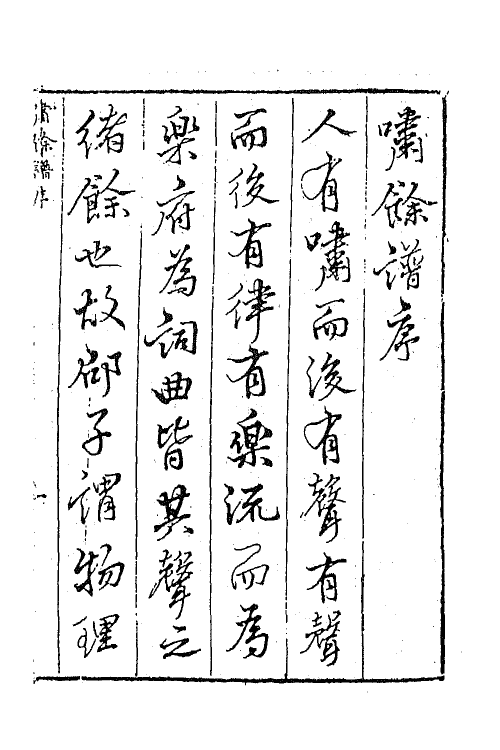 嘯餘譜序
人有嘯而後有聲有聲
而後有律有樂流而為
樂府為詞曲皆其聲之
緒餘也故邵子謂物理
嘯餘譜序
一